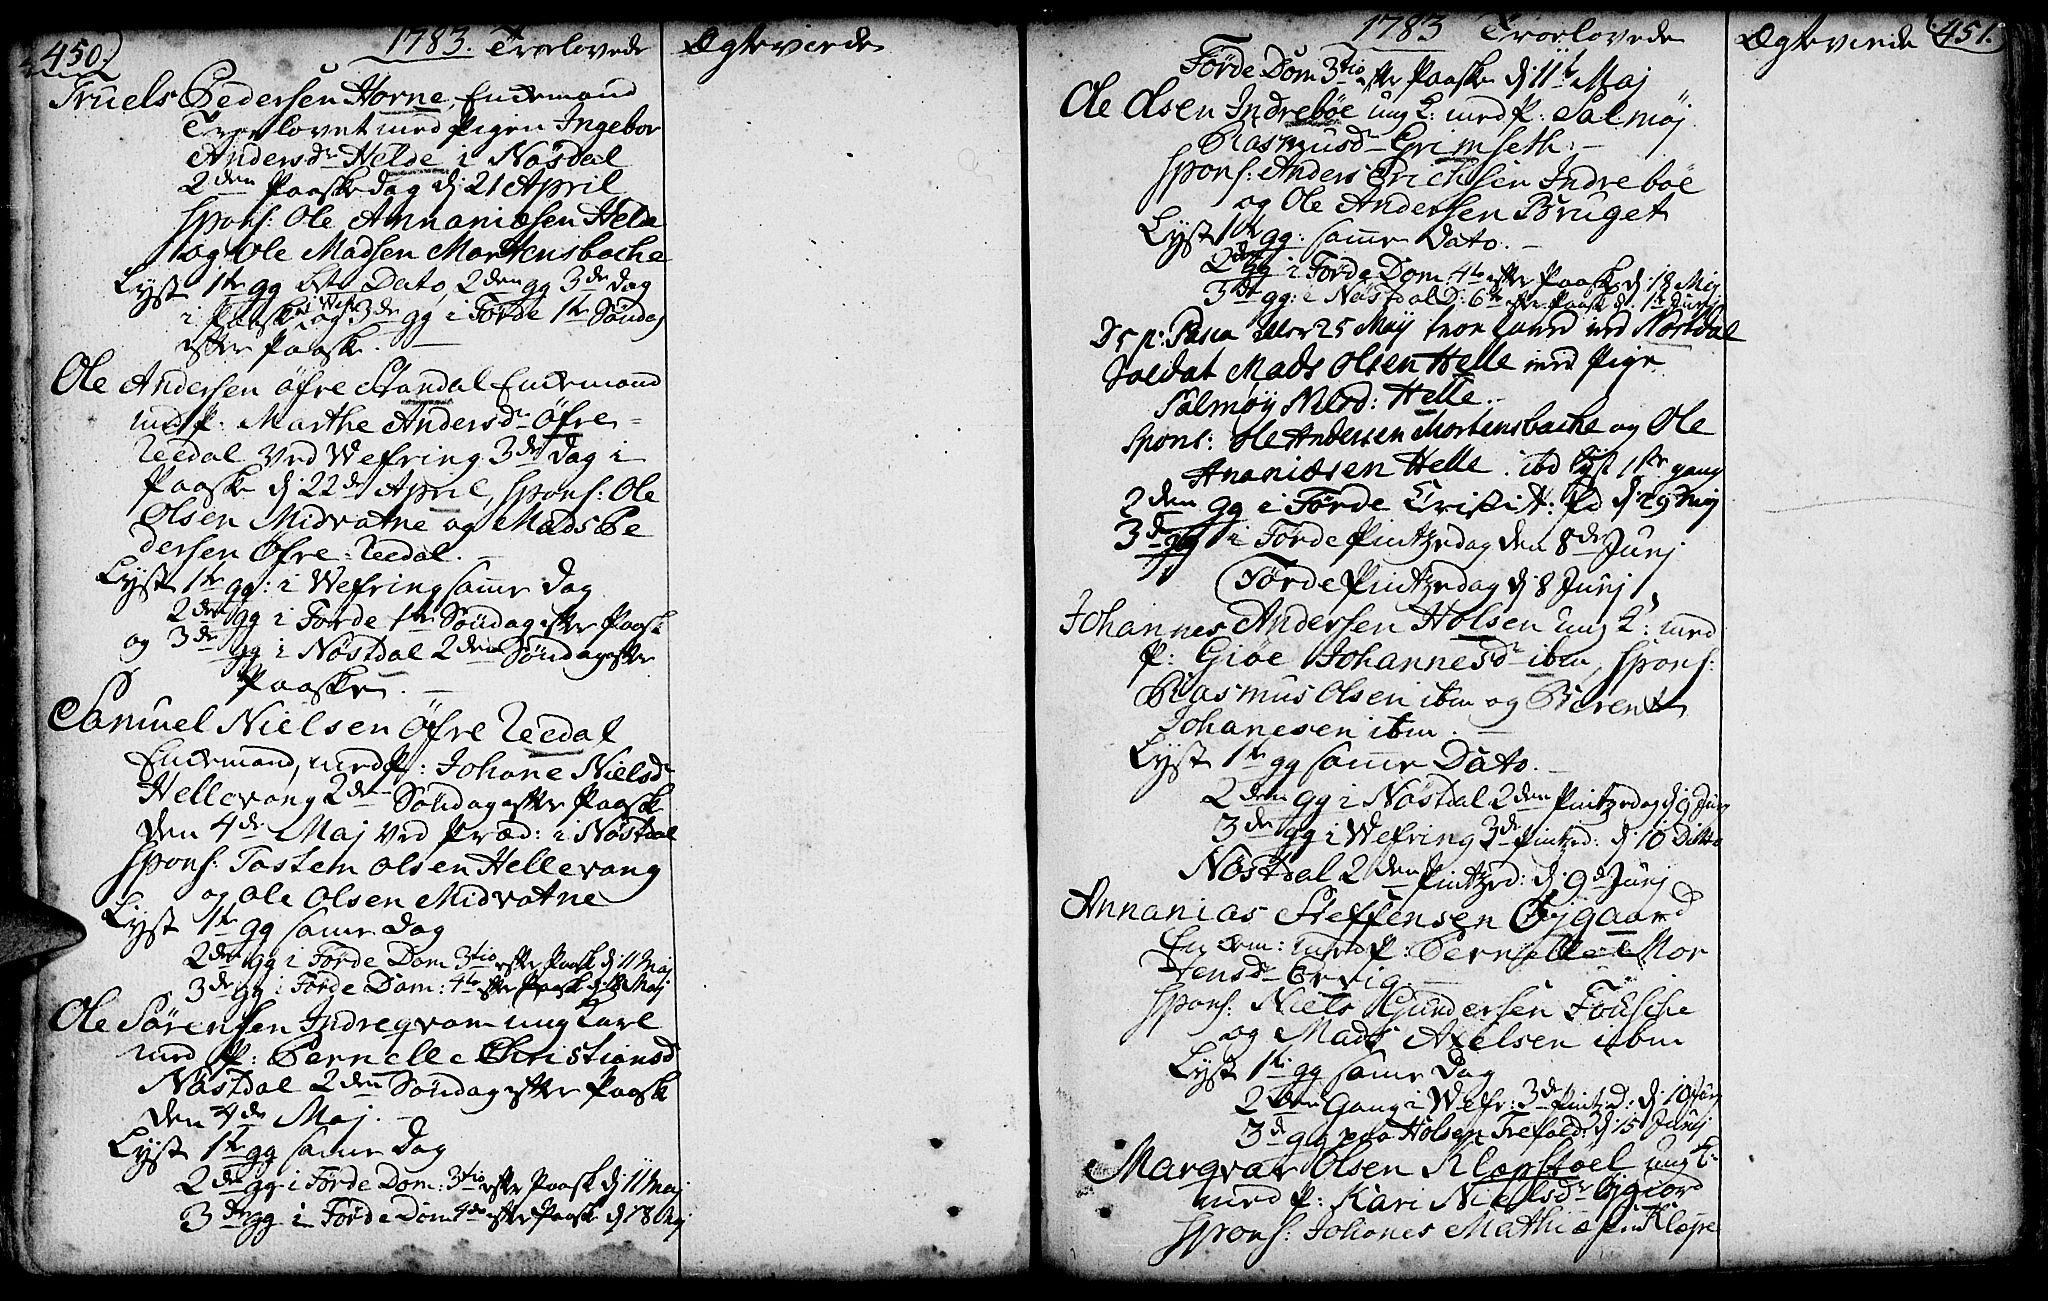 450.) 1783. Troelovede Ægteviede
Truels Pedersen Horne, Enckemand
Troelovet med Pigen Ingebor
Andersdr Helde i Nøsdal
2den Paaskedag d: 21 April
Spons: Ole Annaniæsen Helde
og Ole Madsen Mortensbache
Lyst 1te gg bte Dato, 2den gg 3de dag
i Paaske i Wefr: og 3de gg i Førde 1te Søndag
efter Paaske.
Ole Andersen øfre Standal Enckemand
med P: Marthe Andersdr Øfre-
Reedal ved Wefring 3de Dag i
Paaske d: 22de April, Spons: Ole
Olsen Midvatne og Mads Pe
dersen Øfre-Reedal.
Lyst 1te gg: i Wefring samme dag
2den gg i Førde 1te Søndag efter Paaske
og 3de gg i Nøstdal 2den Søndag efter
Paaske.
Samuel Nielsen Øfre Reedal
Enckemand, med P: Johane Nielsdr
Hellevang 2den Søndag efter Paaske
den 4de Maj ved Præd: i Nøstdal
Spons: Tostem Olsen Hellevang
og Ole Olsen Midvatne
Lyst 1te gg samme dag
2den gg i Førde Dom 3tio efter Paaske d: 11 Maj
3de gg i Førde Dom: 4to efter Paaske d: 18 Maj
Ole Sørensen Indreqvam ung Karl
med P: Pernelle Christiansd
Nøstdal 2den Søndag efter Paaske
den 4de Maj.
Lyst 1te gg samme Dag
2den gg i Førde Dom: 3tio efter Paaske d: 11 Maj
3de gg i Førde Dom 4de efter Paaske d: 18 Maj
1783 Troelovede Ægteviede 451.
Førde Dom 3tio efter Paaske d: 11te Maj
Ole Olsen Indrebøe ung K: med P: Salmøj
Rasmusd- Grimseth.-
Spons: Anders Erichsen Indrebøe
og Ole Andersen Bruget
Lyst 1te gg: samme Dato.-
2den gg i Førde Dom 4to efter Paaske d: 18 Maj
3de gg: i Nøstdal D: 6te efter Paaske d: 1te Junj
D 5 p: Pasca 25 Maij med Nøstdal
Soldat Mads Olsen Helle med Pige
Salmøy Nilsd: Helle.
Spons: Ole Andersen Mortensbache og Ole
Ananiæsen Helle. ibd Lyst 1ste gang
2den gg i Førde d: 29 Maj
3de gg i Førde Pintzedag den 8de Junj
Førde Pintzedag d: 8 Junj
Johannes Andersen Holsen ung K: med
P: Giøe Johannesdr ibm, Spons:
Rasmus Olsen ibm og Berent
Johanesen ibm.
Lyst 1te gg samme Dato.-
2den gg i Nøstdal 2den Pintzedag d: 9 Junj
3de gg i Wefring 3de Pintzed: d: 10 Ditto
Nøstdal 2den Pintzed: d: 9de Junj
Annanias Steffensen Øygaard
Enckem: med P: Pernelle Mor
tensdr Ervig
Spons: Niels Gundersen Fousche
og Mads Axelsen ibm
Lyst 1te gg samme Dag
2den Gang i Wefr: 3de Pintzed: d: 10 Junj
3de gg paa Holsen Trefold: d: 15 Junij
Marqvar Olsen Klopstøel ung K:
med P: Kari Nielsdr
Spons: Johanes Mathiæsen Kløpe